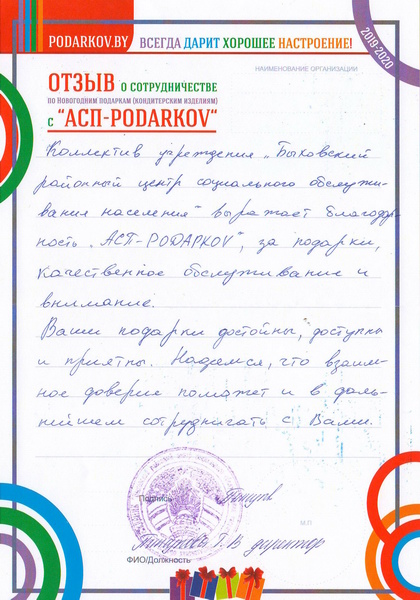 PODARKOV.BY ВСЕГДА ДАРИТ ХОРОШЕЕ НАСТРОЕНИЕ!
2019-2020
НАИМЕНОВАНИЕ ОРГАНИЗАЦИИ
ОТЗЫВ О СОТРУДНИЧЕСТВЕ
ПО НОВОГОДНИМ ПОДАРКАМ (КОНДИТЕРСКИМ ИЗДЕЛИЯМ)
С "АСП-PODARKOV"
Коллектив учреждения „Быховский
районный центр социального обслужи-
вания населения" выражает благодар-
ность „АСП-PODARKOV", за подарки,
качественное обслуживание и
внимание.
Ваши подарки достойны, доступны
и приятны. Надеемся, что взаим-
ное доверие поможет и в даль-
нейшем сотрудничать с Вами.
Подпись
М.П
Г.В директор
ФИО/Должность